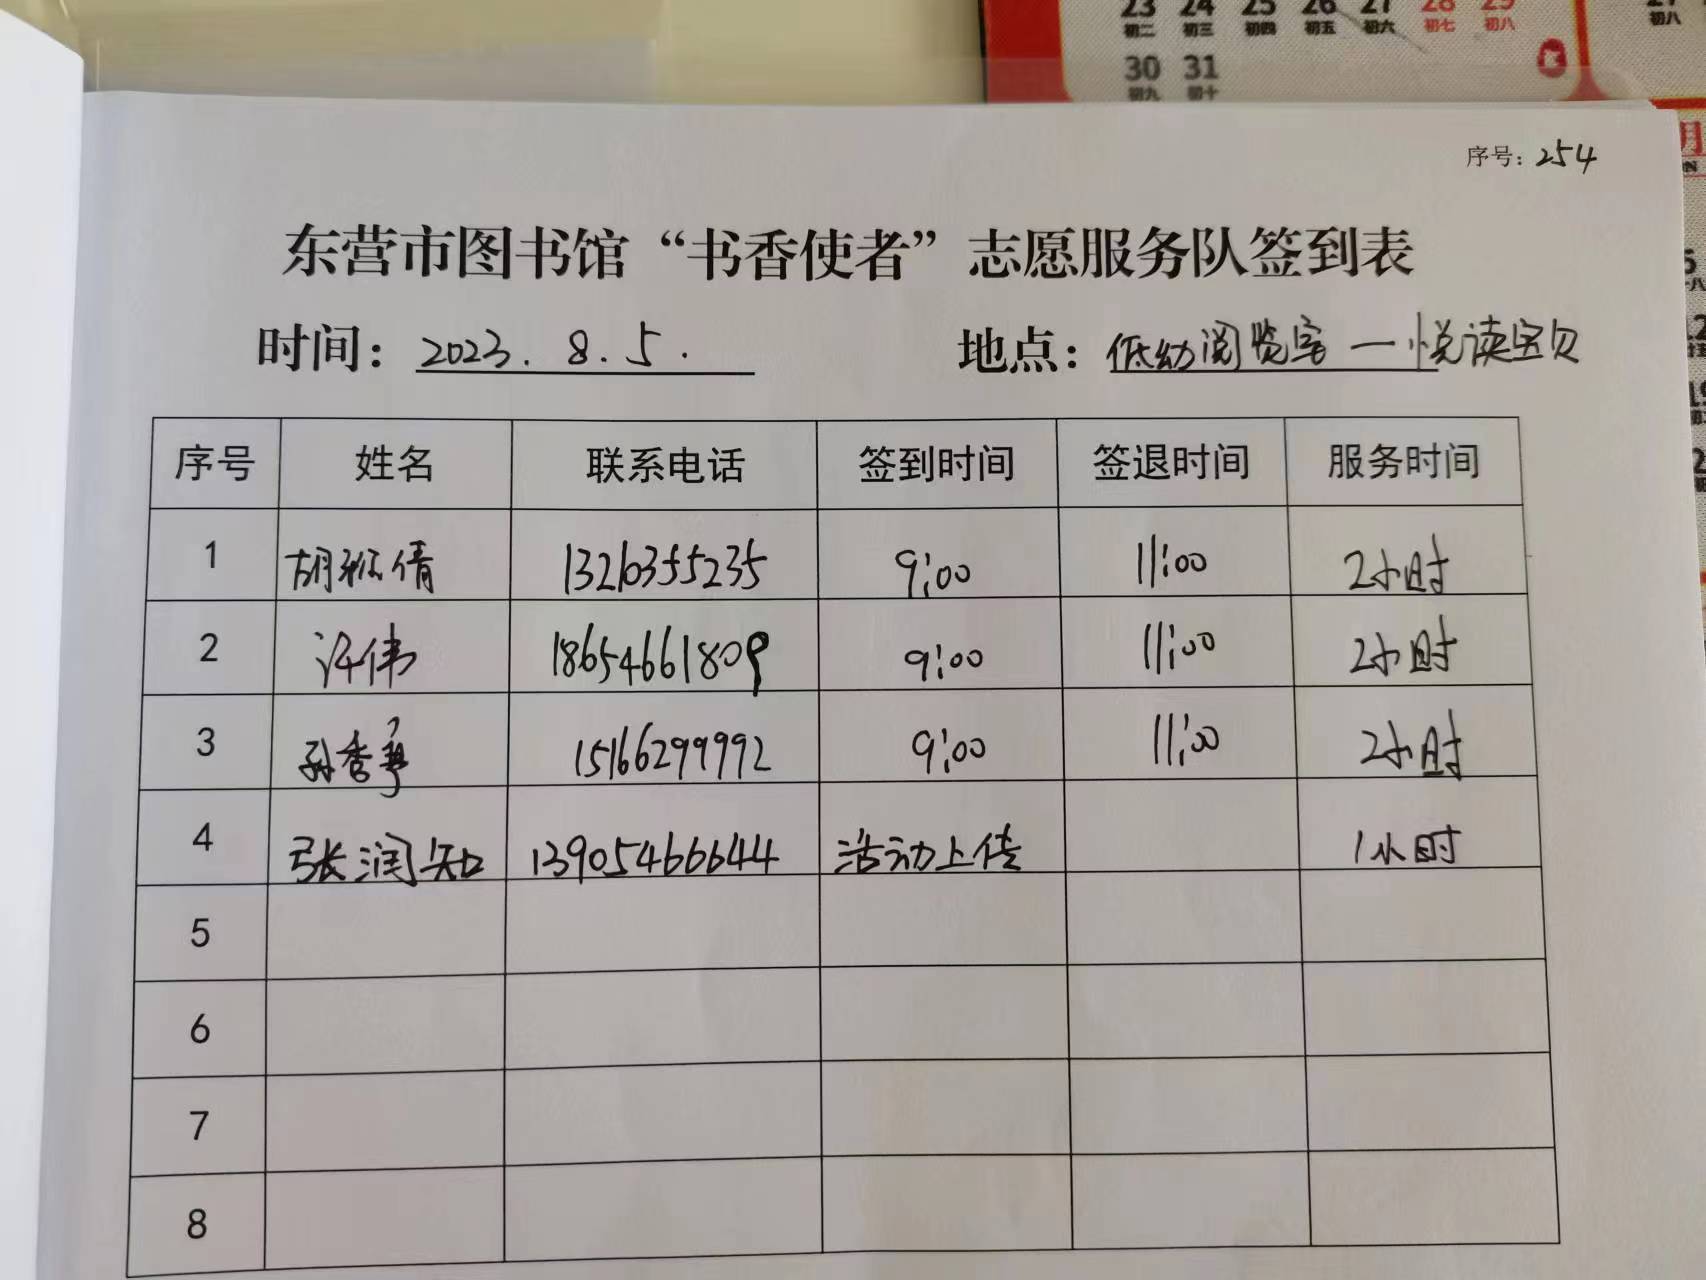 23 24 25 26 27 28 29
初二 初三 初四 初五 初六 初七 初八
30 31
初九 初十
初八
月
序号：254
东营市图书馆“书香使者”志愿服务队签到表
时间：2023.8.5.
地点：低幼阅览室—悦读宝贝
序号 姓名 联系电话 签到时间 签退时间 服务时间
1 胡雅倩 13210355235 9:00 11:00 2小时
2 许伟 18654661809 9:00 11:00 2小时
3 孙香 15166299992 9:00 11:00 2小时
4 张润知 13905466644 活动上传 1小时
5
6
7
8